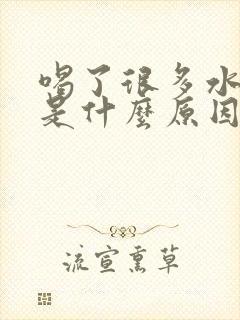 喝了很多水
是什麼原因
流宣熏草